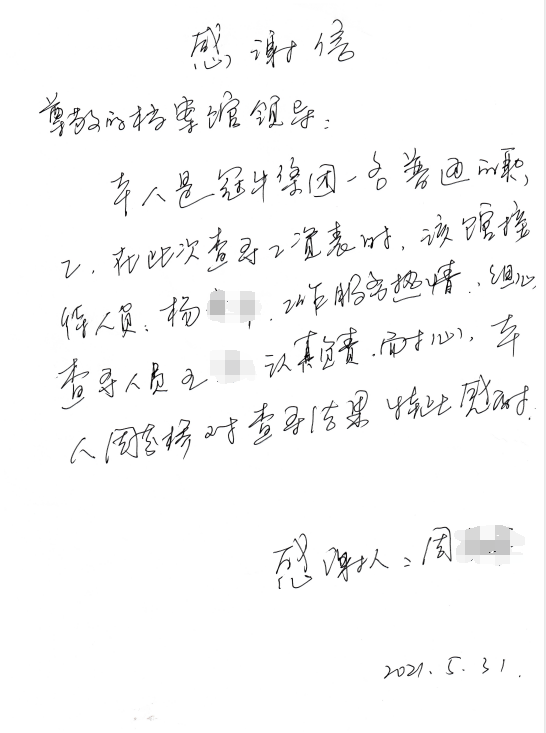 感谢信
尊敬的档案馆领导：
本人是冠生集团一名普通的职
工，在此次查寻工资表时，该馆接
待人员：杨 ，工作服务热情、细心，
查寻人员王 认真负责，耐心，本
人周 对查寻结果特此感谢
感谢人：周
2021.5.31.